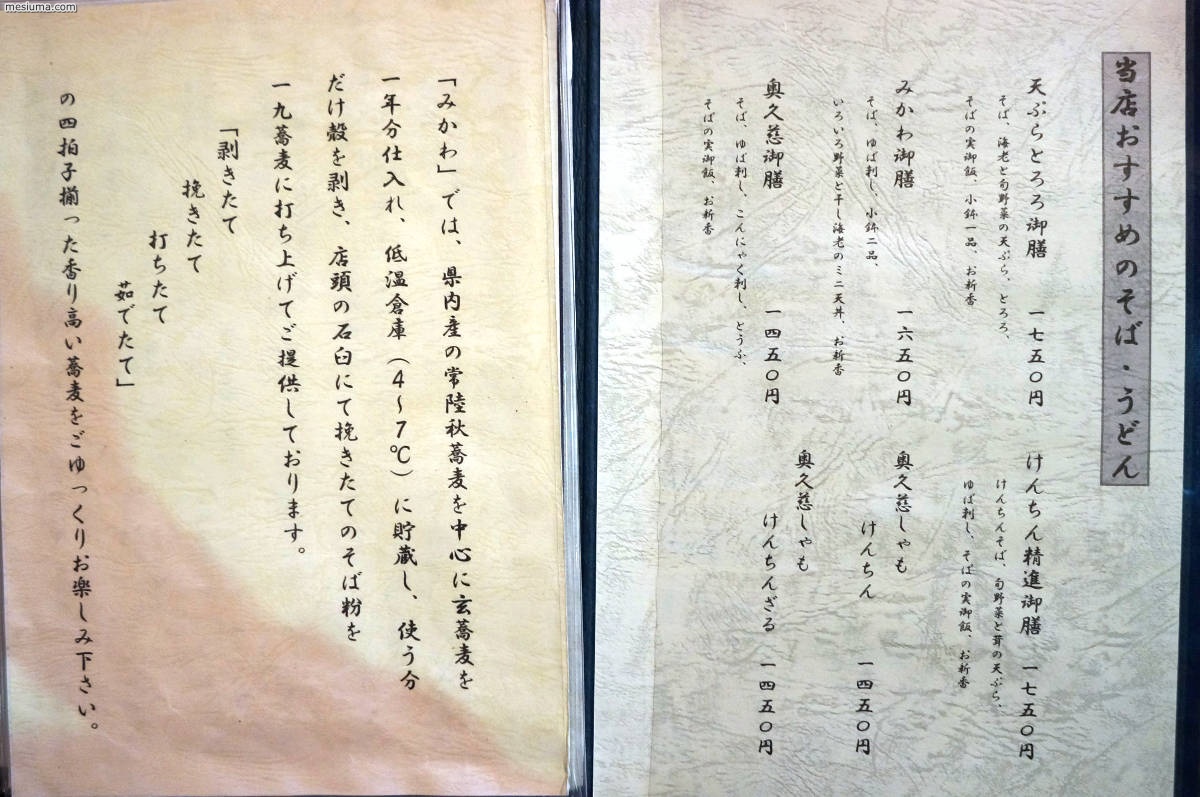 mesiuma.com
当店おすすめのそば・うどん
天ぷらとろろ御膳 一七五〇円
そば、海老と旬野菜の天ぷら、とろろ、
そばの実御飯、小鉢一品、お新香
みかわ御膳 一六五〇円
そば、ゆば刺し、小鉢二品、
いろいろ野菜と干し海老のミニ天丼、お新香
奥久慈御膳 一四五〇円
そば、ゆば刺し、こんにゃく刺し、とうふ、
そばの実御飯、お新香
けんちん精進御膳 一七五〇円
けんちんそば、旬野菜と茸の天ぷら、
ゆば刺し、そばの実御飯、お新香
奥久慈しゃも
けんちん 一四五〇円
奥久慈しゃも
けんちんざる 一四五〇円
「みかわ」では、県内産の常陸秋蕎麦を中心に玄蕎麦を
一年分仕入れ、低温倉庫(4～7℃)に貯蔵し、使う分
だけ殻を剥き、店頭の石臼にて挽きたてのそば粉を
一九蕎麦に打ち上げてご提供しております。
「剥きたて
挽きたて
打ちたて
茹でたて」
の四拍子揃った香り高い蕎麦をごゆっくりお楽しみ下さい。